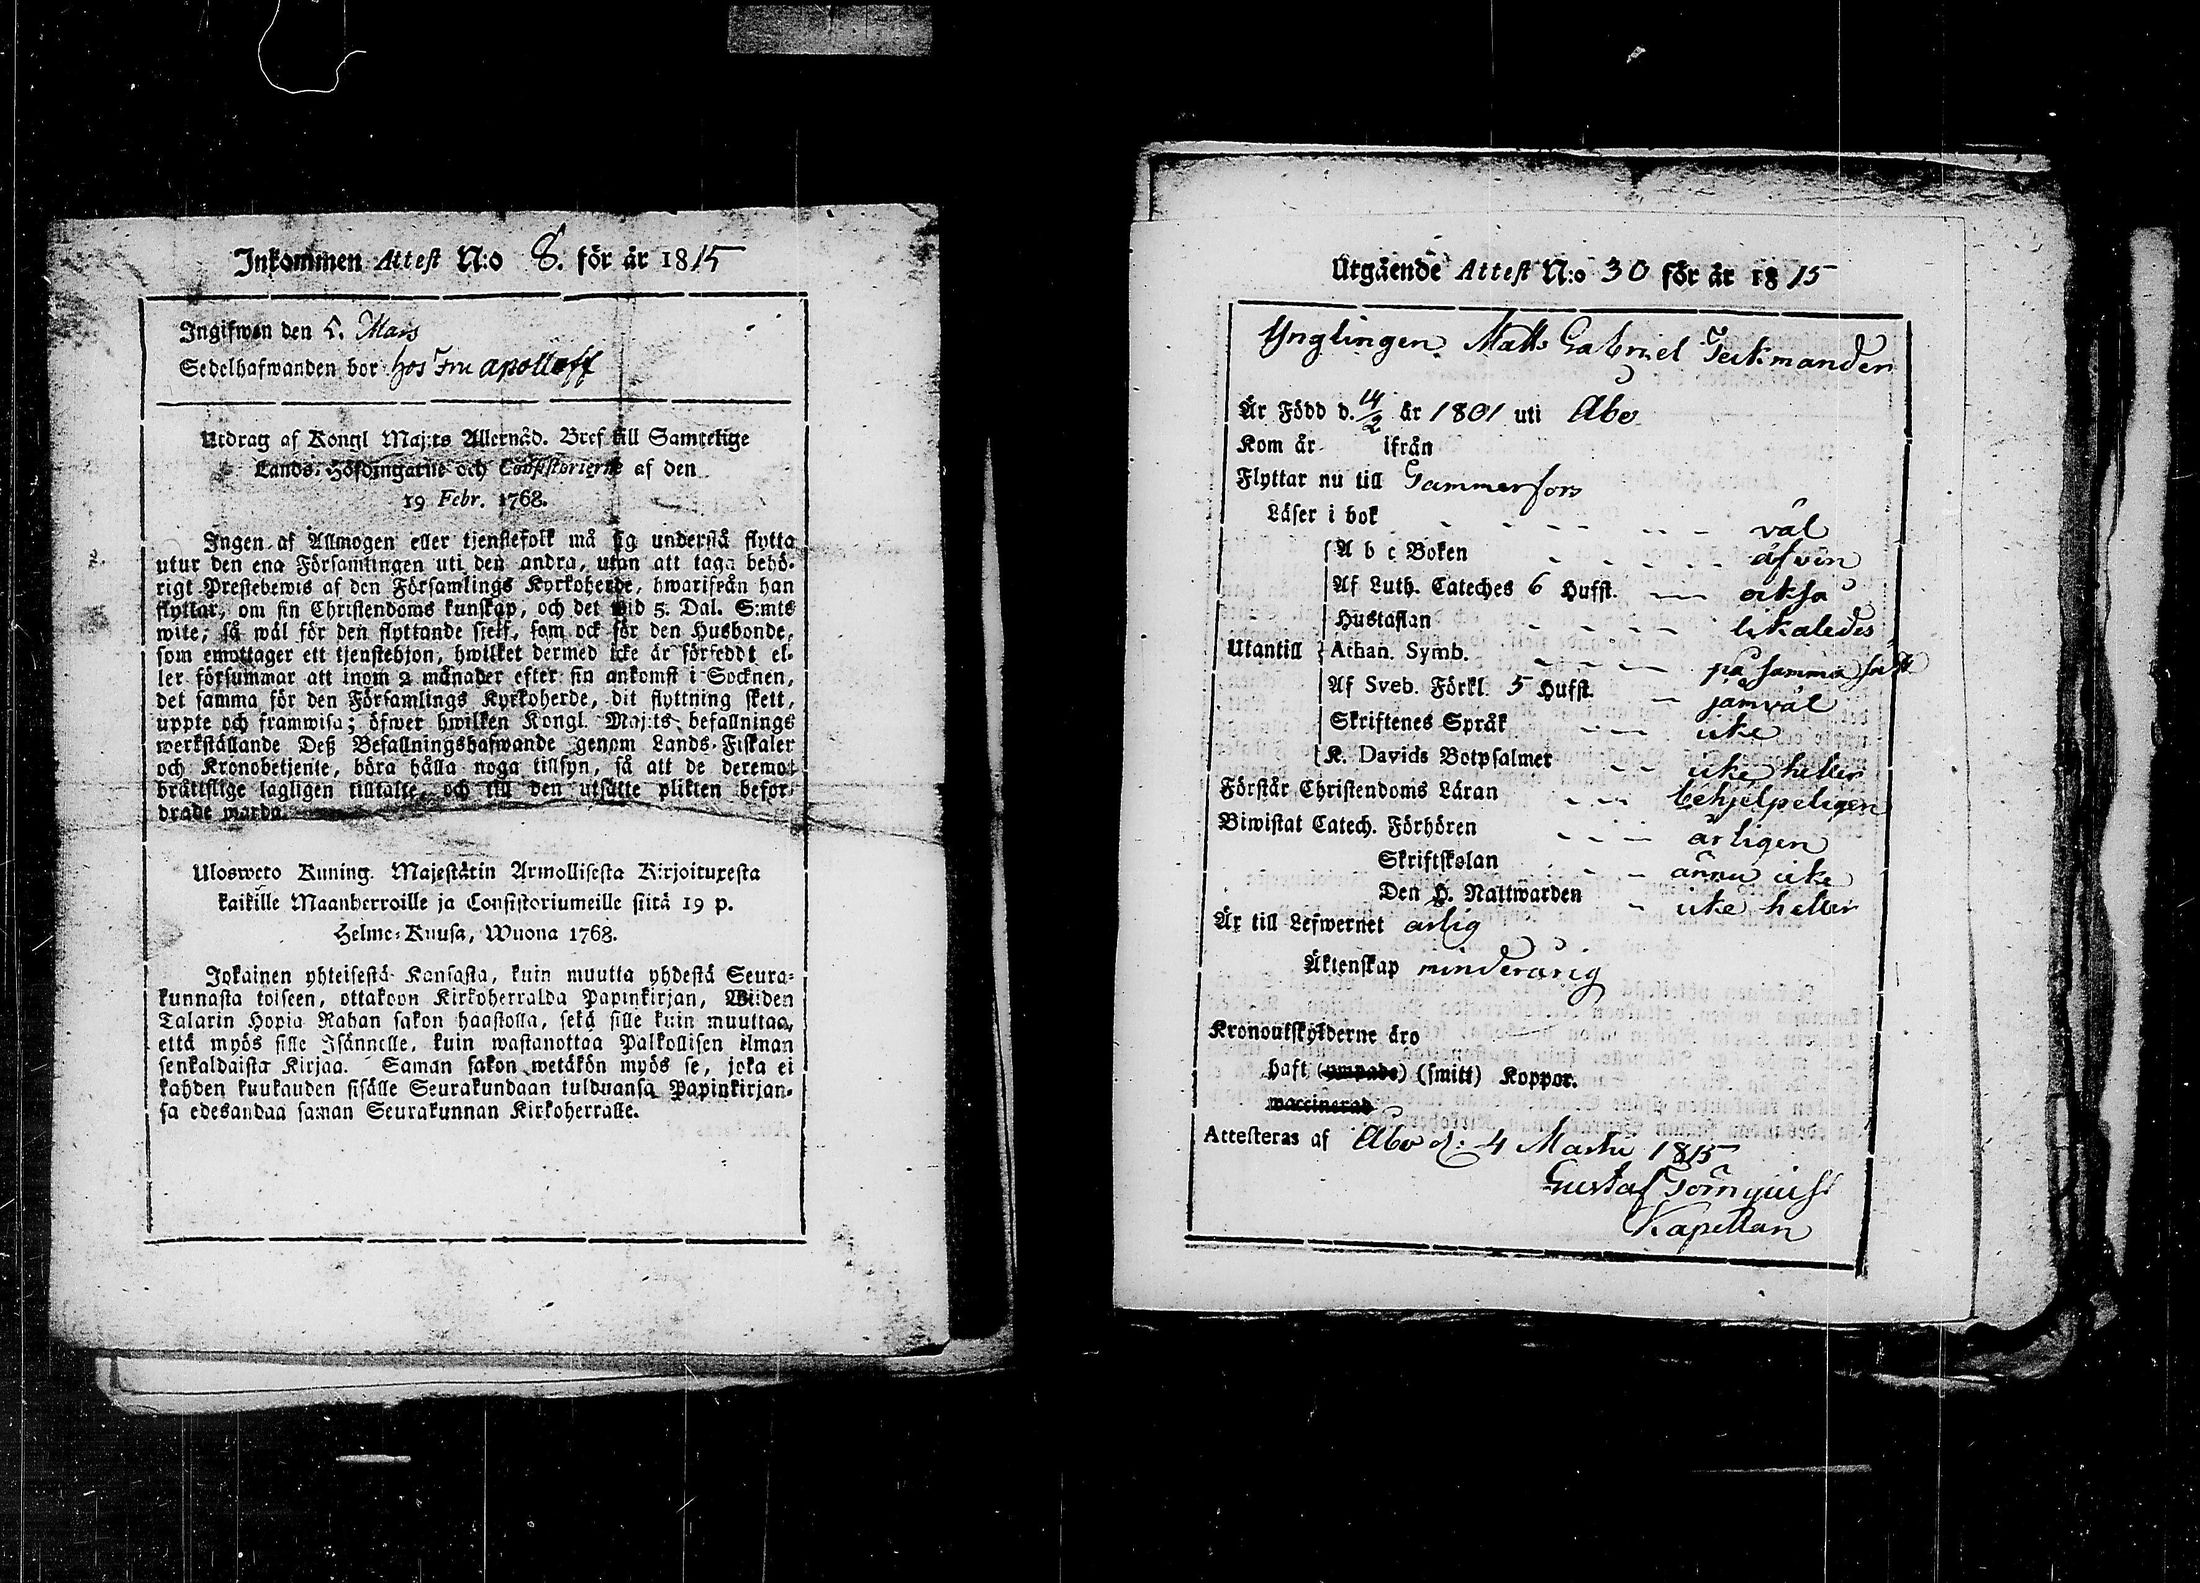 Inkommen Attest N:o 8. för år 1815
Ingifwen den 5. Mars
Sedelhafwanden bor hos Fru Apolloff
Utdrag af Kongl Maj:ts Allernåd. Bref till Samtelige
Lands-Höfdingarne och Consistorierne af den
19 Febr. 1768.
Ingen af Allmogen eller tjenstefolk må sig understå flytta
utur den ena Församlingen uti den andra, utan att taga behö-
rigt Prestebewis af den Församlings Kyrkoherde, hwarifrån han
flyttar, om sin Christendoms kunskap, och det wid 5. Dal. S:mts
wite, så wäl för den flyttande sielf, som ock för den Husbonde,
som emottager ett tjenstehjon, hwilket dermed icke är förseddt el-
ler försummar att inom 2 månader efter sin ankomst i Socknen,
det samma för den Församlings Kyrkoherde, dit flyttning skett,
uppte och framwisa; öfwer hwilken Kongl. Maj:ts befallnings
werkställande Deß Befallningshafwande genom Lands-Fiskaler
och Kronobetjente, böra hålla noga tillsyn, så att de deremot
bråttslige lagligen tilltalte, och till den utsatte plikten befor-
drade warda.
Ulosweto Kuning. Majestätin Armollisesta Kirjoituxesta
kaikille Maanherroille ja Consistoriumeille siitä 19 p.
Helme-Kuusa, Wuona 1768.
Jokainen yhteisestä Kansasta, kuin muutta yhdestä Seura-
kunnasta toiseen, ottakoon Kirkoherralda Papinkirjan, Wiiden
Talarin Hopia Rahan sakon haastolla, sekä sille kuin muuttaa,
että myös sille Isännelle, kuin wastanottaa Palkollisen ilman
senkaldaista Kirjaa. Saman sakon wetäkön myös se, joka ei
kahden kuukauden sisälle Seurakundaan tulduansa Papinkirjan-
sa edesandaa saman Seurakunnan Kirkoherralle.
Utgående Attest N:o 30 för år 1815
Ynglingen Matts Gabriel Teckmander
Är Född d. 14/2 år 1801 uti Åbo
Kom år ifrån
Flyttar nu till Tammerfors
Läser i bok - - - - - väl
A b c Boken - - - - äfven
Af Luth. Cateches 6 Hufst. - - också
Hustaflan - - - - likaledes
Utantill Athan. Symb. - - - - på samma sätt
Af Sveb. Förkl. 5 Hufst. - jämväl
Skriftenes Språk - - - icke
K. Davids Botpsalmer - - icke heller
Förstår Christendoms Läran - - - behjelpeligen
Biwistat Catech. Förhören - - - årligen
Skriftskolan - - - ännu icke
Den H. Nattwarden - icke heller
Är till Lefwernet ärlig
Äktenskap minderårig
Kronoutskylderne äro
haft (ympade) (smitt) Koppor.
waccinerad
Attesteras af Åbo d. 4 Martii 1815
Gustaf Törnquist
Kapellan